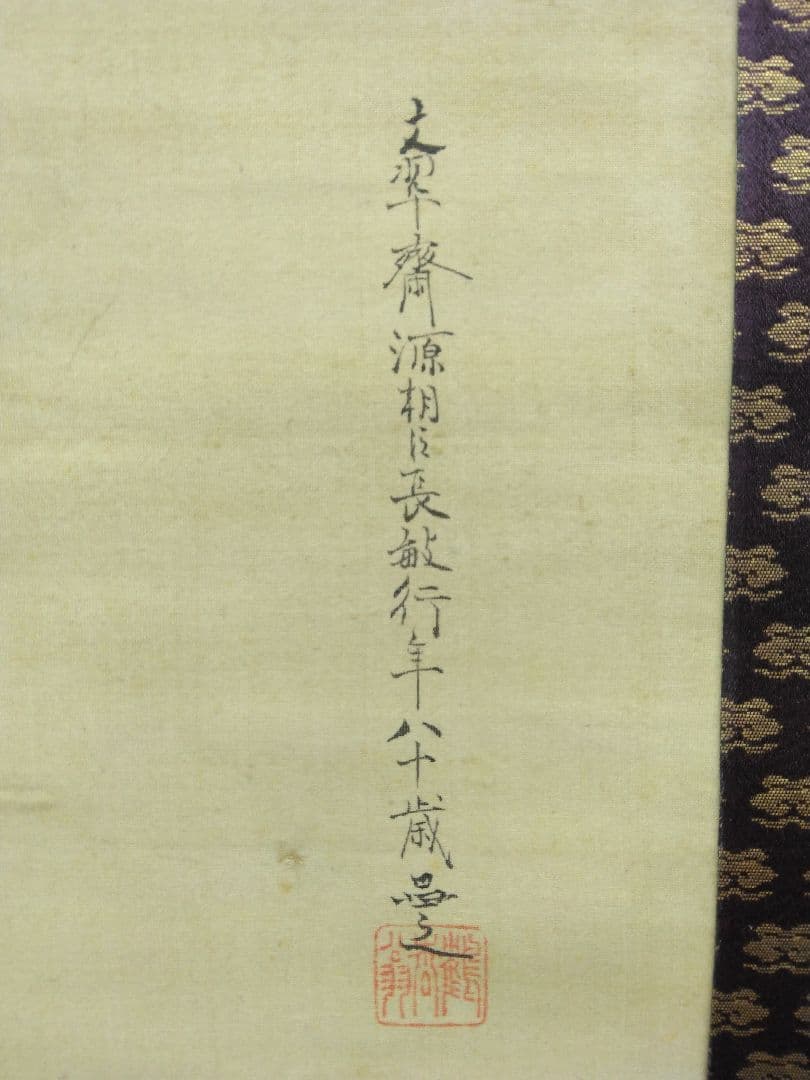 文翠齋源朝臣長敏行年八十歳